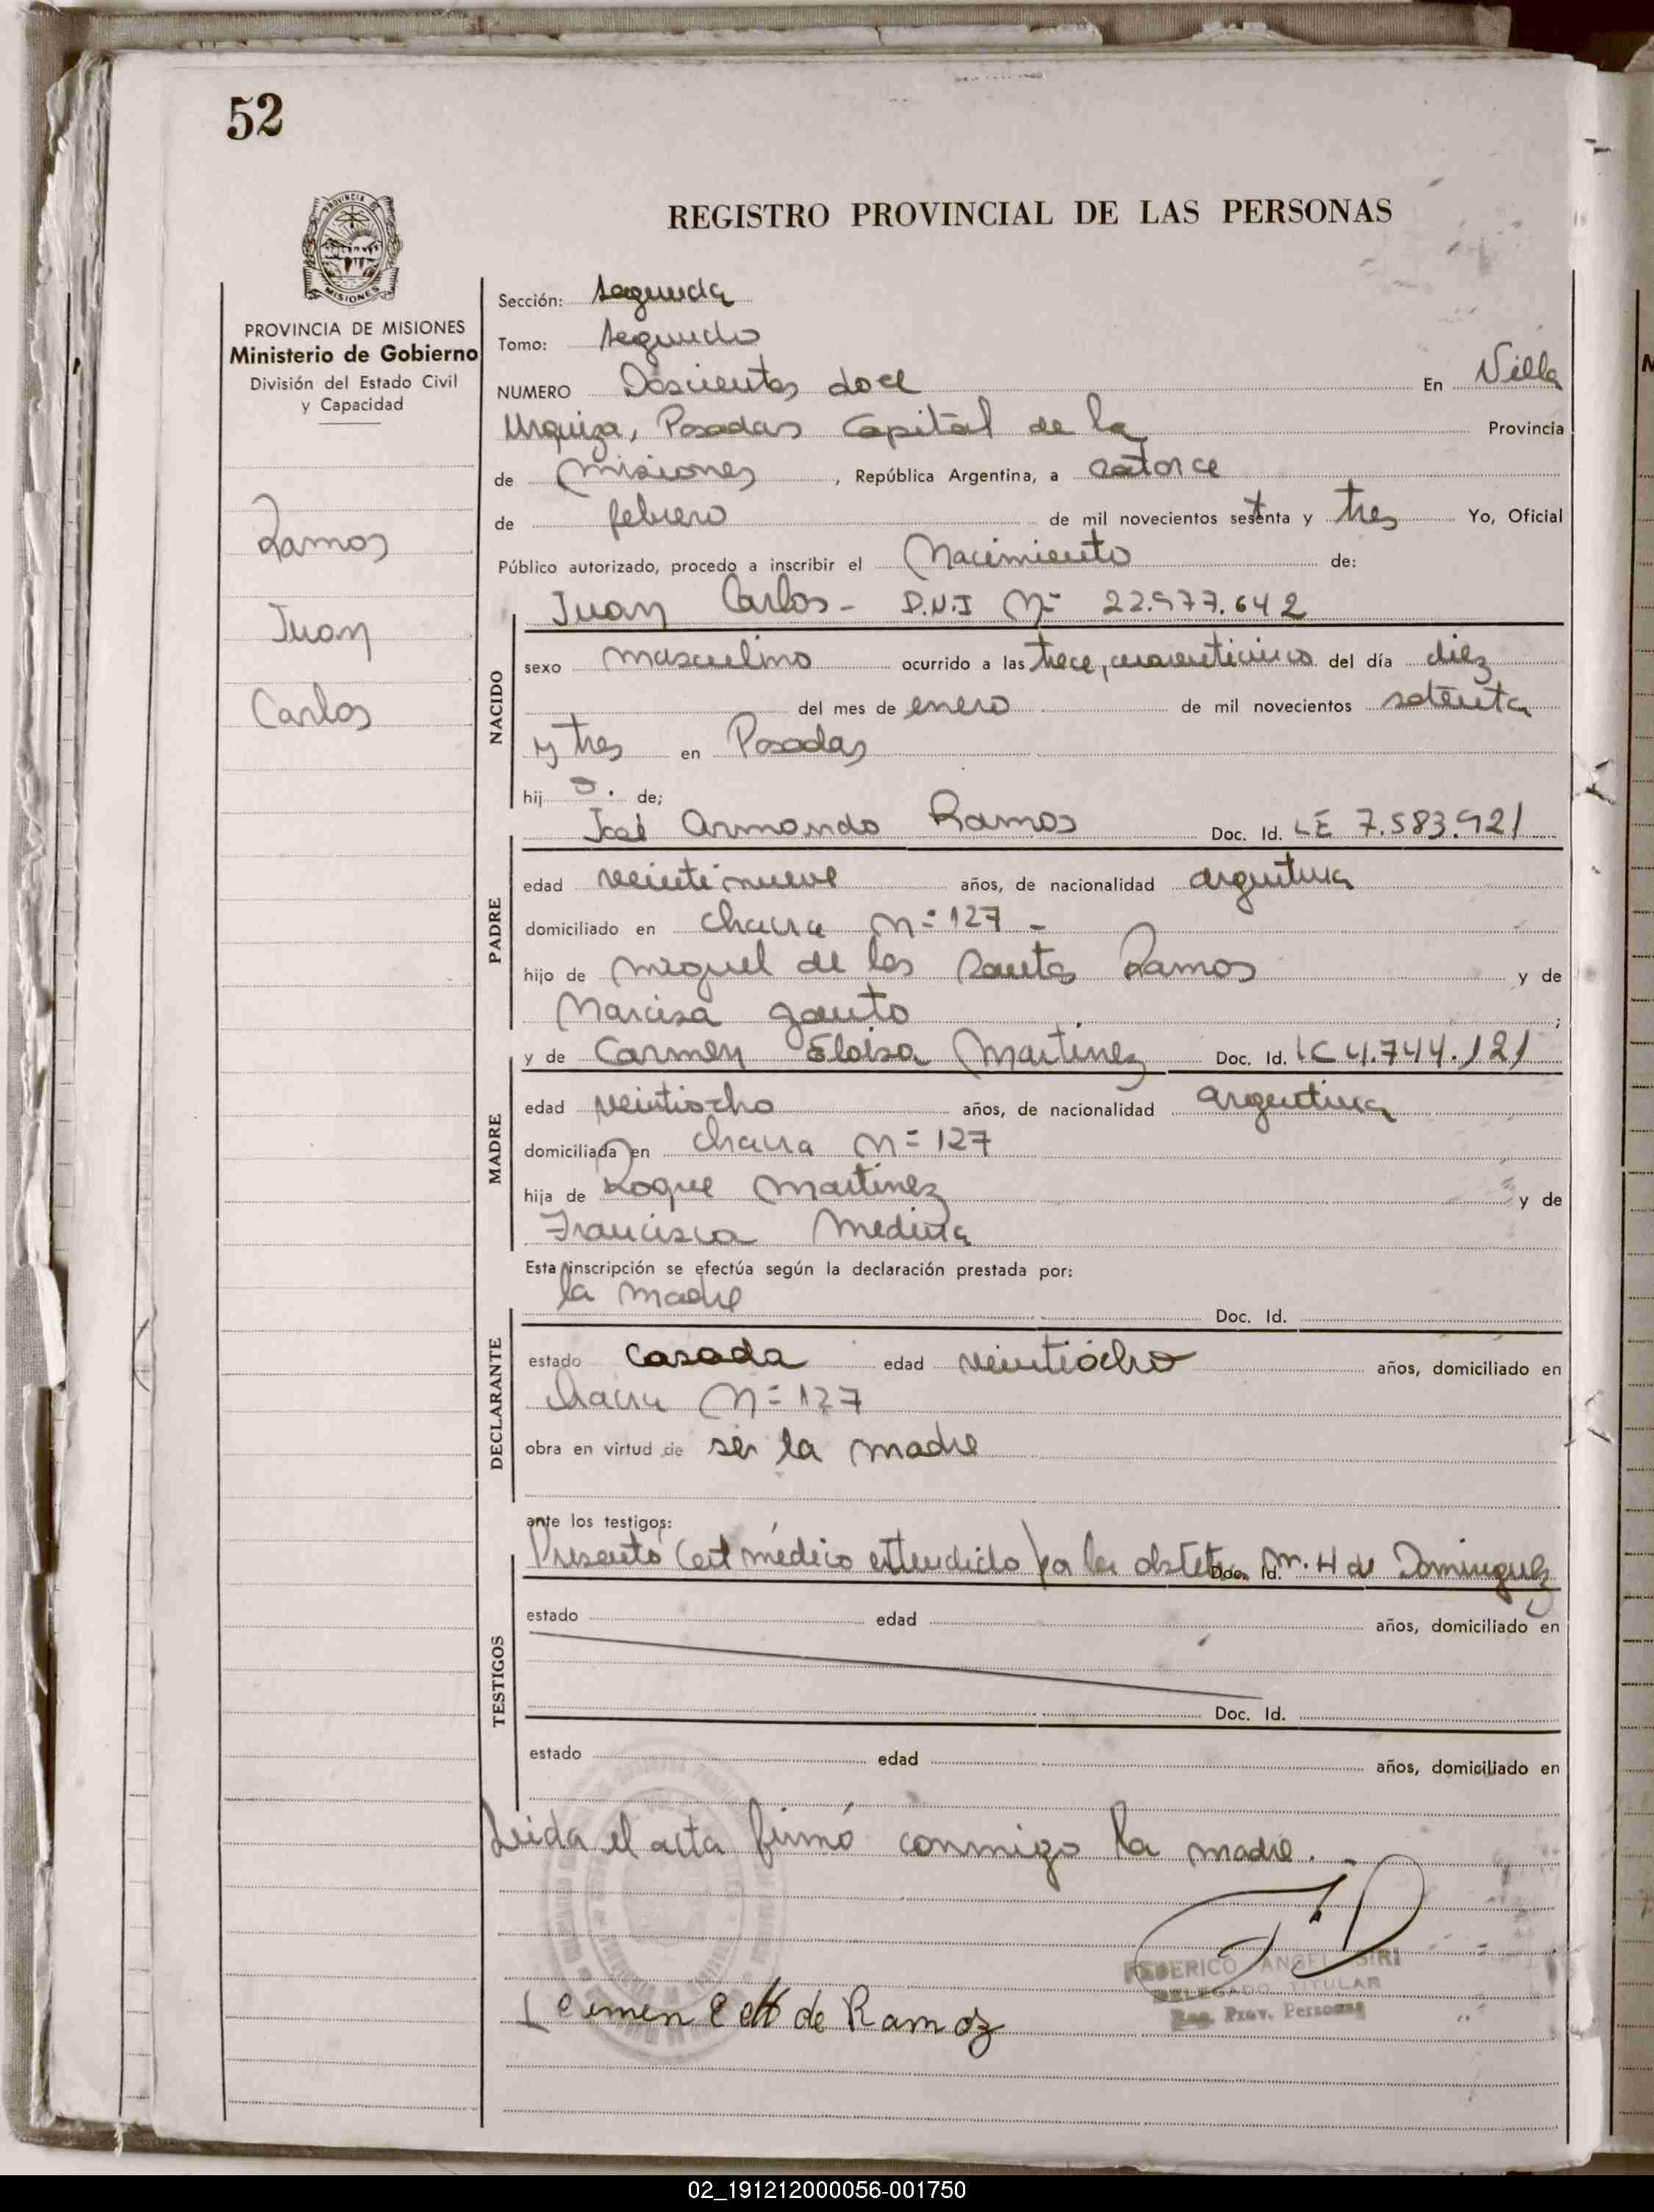 52
REGISTRO PROVINCIAL DE LAS PERSONAS
PROVINCIA DE MISIONES
Ministerio de Gobierno
División del Estado Civil
y Capacidad
Ramos
Juan
Carlos
Sección: segunda
Tomo: segundo
NUMERO Doscientos doce En Villa
Urquiza, Posadas Capital de la Provincia
de Misiones, República Argentina, a catorce
de febrero de mil novecientos setenta y tres Yo, Oficial
Público autorizado, procedo a inscribir el Nacimiento de:
Juan Carlos - D.N.I Nº 22.977.642
NACIDO
sexo masculino ocurrido a las trece, cuarenticinco del día diez
del mes de enero de mil novecientos setenta
y tres en Posadas
hij o. de;
José Armando Ramos Doc. Id. LE 7.583.921
PADRE
edad veintinueve años, de nacionalidad argentina
domiciliado en chacra Nº 127 -
hijo de Miguel de los Santos Ramos y de
Narcisa Gauto ;
y de Carmen Eloisa Martinez Doc. Id. LC 4.744.121
MADRE
edad veintiocho años, de nacionalidad argentina
domiciliada en chacra Nº 127
hija de Roque Martinez y de
Francisca Medina
Esta inscripción se efectúa según la declaración prestada por:
la madre
Doc. Id.
DECLARANTE
estado casada edad veintiocho años, domiciliado en
chacra Nº 127
obra en virtud de ser la madre
ante los testigos:
Presentó Cert médico extendido por la obstetra Doc. Id. M. H de Dominguez
TESTIGOS
estado edad años, domiciliado en
Doc. Id.
estado edad años, domiciliado en
Leida el acta firmó conmigo la madre.
FEDERICO ANGEL SIRI
DELEGADO TITULAR
Reg. Prov. Personas
de Ramoz
02_191212000056-001750